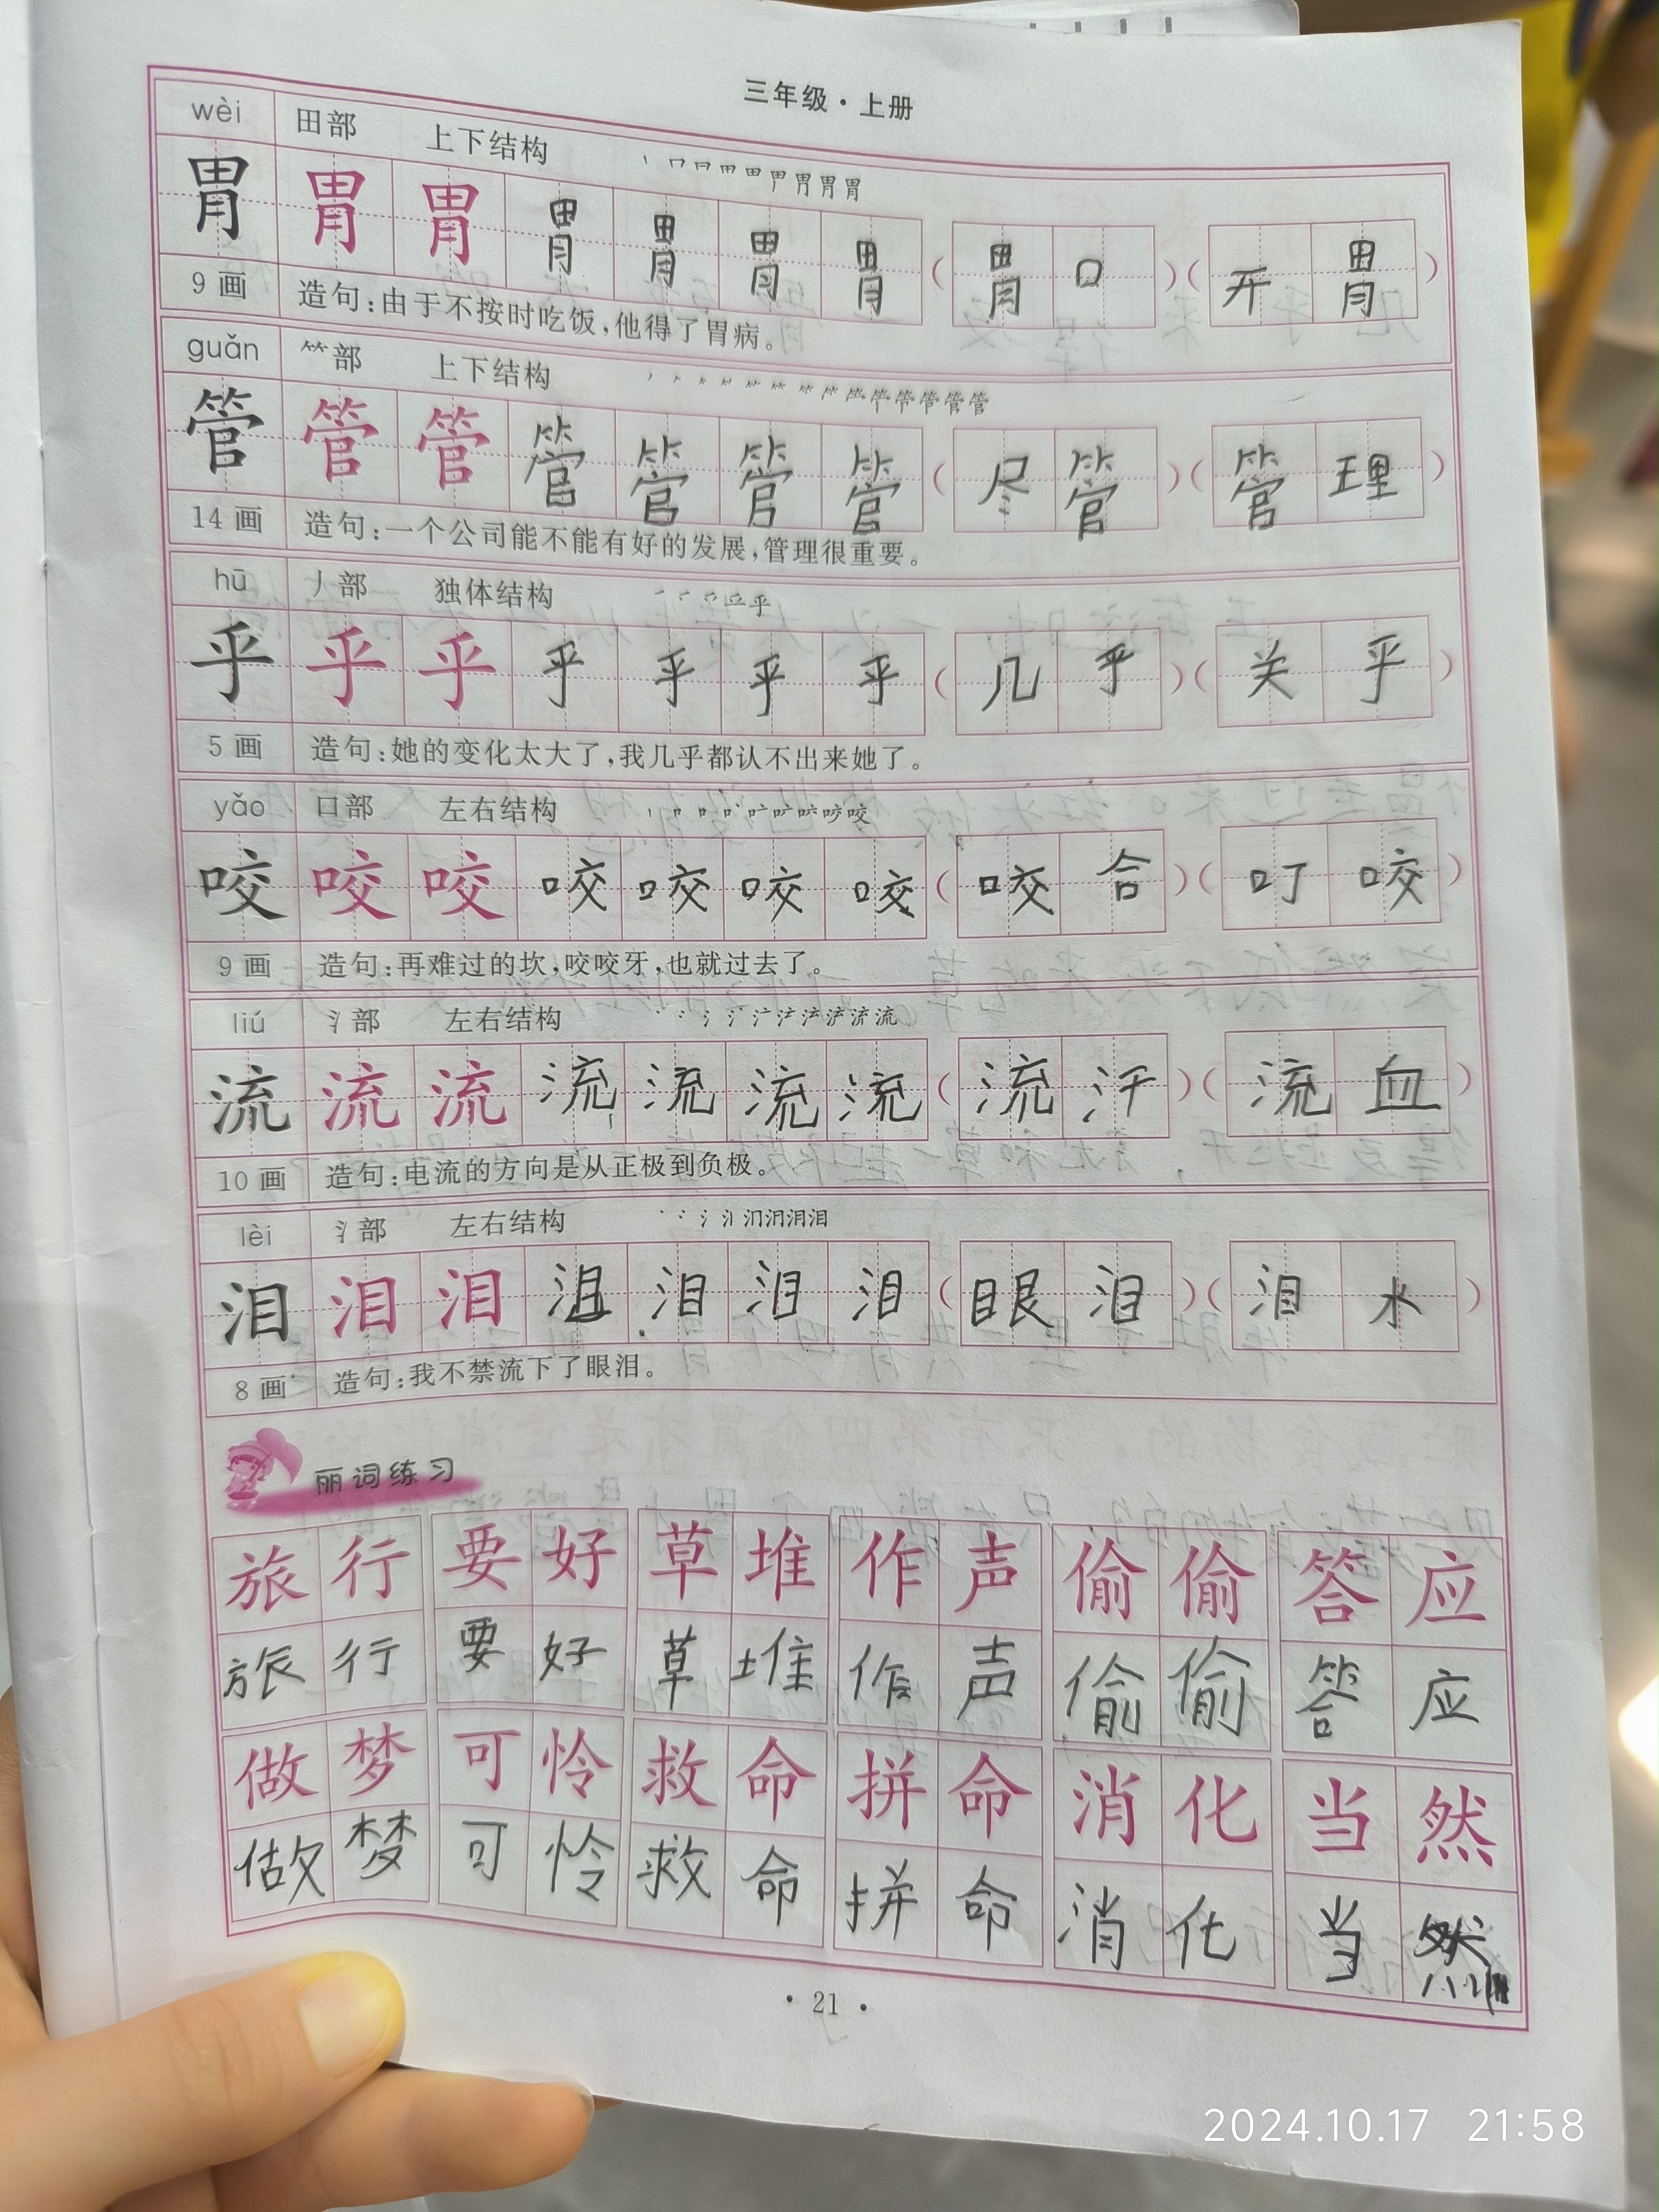 三年级·上册
wèi 田部 上下结构
胃 胃 胃 胃 胃 胃 胃 (胃口)(开胃)
9画 造句:由于不按时吃饭,他得了胃病。
guǎn ⺮部 上下结构
管 管 管 管 管 管 管 (尽管)(管理)
14画 造句:一个公司能不能有好的发展,管理很重要。
hū 丿部 独体结构
乎 乎 乎 乎 乎 乎 乎 (几乎)(关乎)
5画 造句:她的变化太大了,我几乎都认不出来她了。
yǎo 口部 左右结构
咬 咬 咬 咬 咬 咬 咬 (咬合)(叮咬)
9画 造句:再难过的坎,咬咬牙,也就过去了。
liú 氵部 左右结构
流 流 流 流 流 流 流 (流汗)(流血)
10画 造句:电流的方向是从正极到负极。
lèi 氵部 左右结构
泪 泪 泪 泪 泪 泪 泪 (眼泪)(泪水)
8画 造句:我不禁流下了眼泪。
丽词练习
旅行 要好 草堆 作声 偷偷 答应
旅行 要好 草堆 作声 偷偷 答应
做梦 可怜 救命 拼命 消化 当然
做梦 可怜 救命 拼命 消化 当然
·21·
2024.10.17 21:58